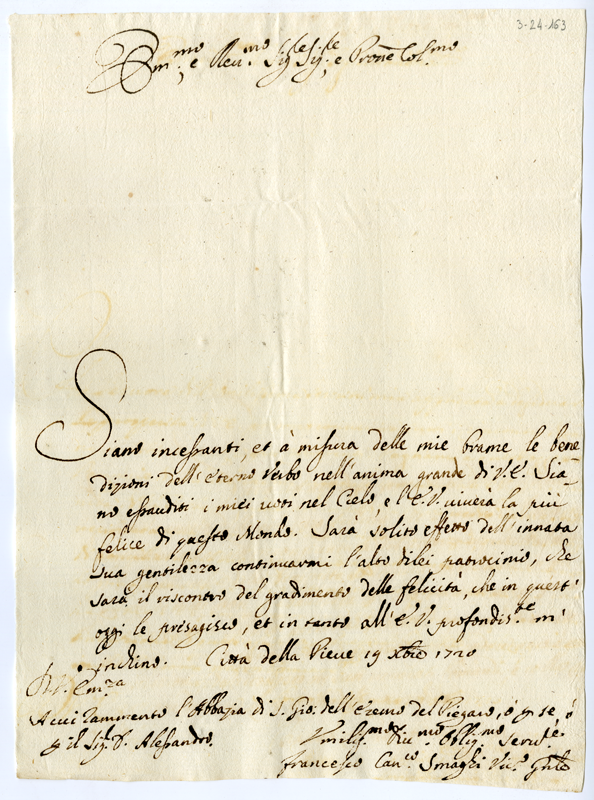 3-24-163
Em.mo e Rev.mo Sig.re Sig.re e Prone Col.mo
Siano incessanti, et à misura delle mie brame le bene
dizioni dell'eterno Verbo nell'anima grande di V.E. Sia-
no essauditi i miei voti nel Cielo, e l'E.V. viverà la più
felice di questo Mondo. Sarà solito effetto dell'innata
sua gentilezza continuarmi l'alto dilei patrocinio, che
sarà il riscontro del gradimento delle felicità, che in quest'
oggi le presagisco, et in tanto all'E.V. profondis.te m'
inchino. Città della Pieve 19 Xbre 1720
D. V. Em.za
A cui rammento l'Abbazia di S. Gio. dell'Eremo del Piegaro, ò p se, ò
p il Sig. D. Alessandro.
Vmilis.mo Div.mo Oblig.mo Servit.e
Francesco Can.co Smaghi Vic.o Gnle